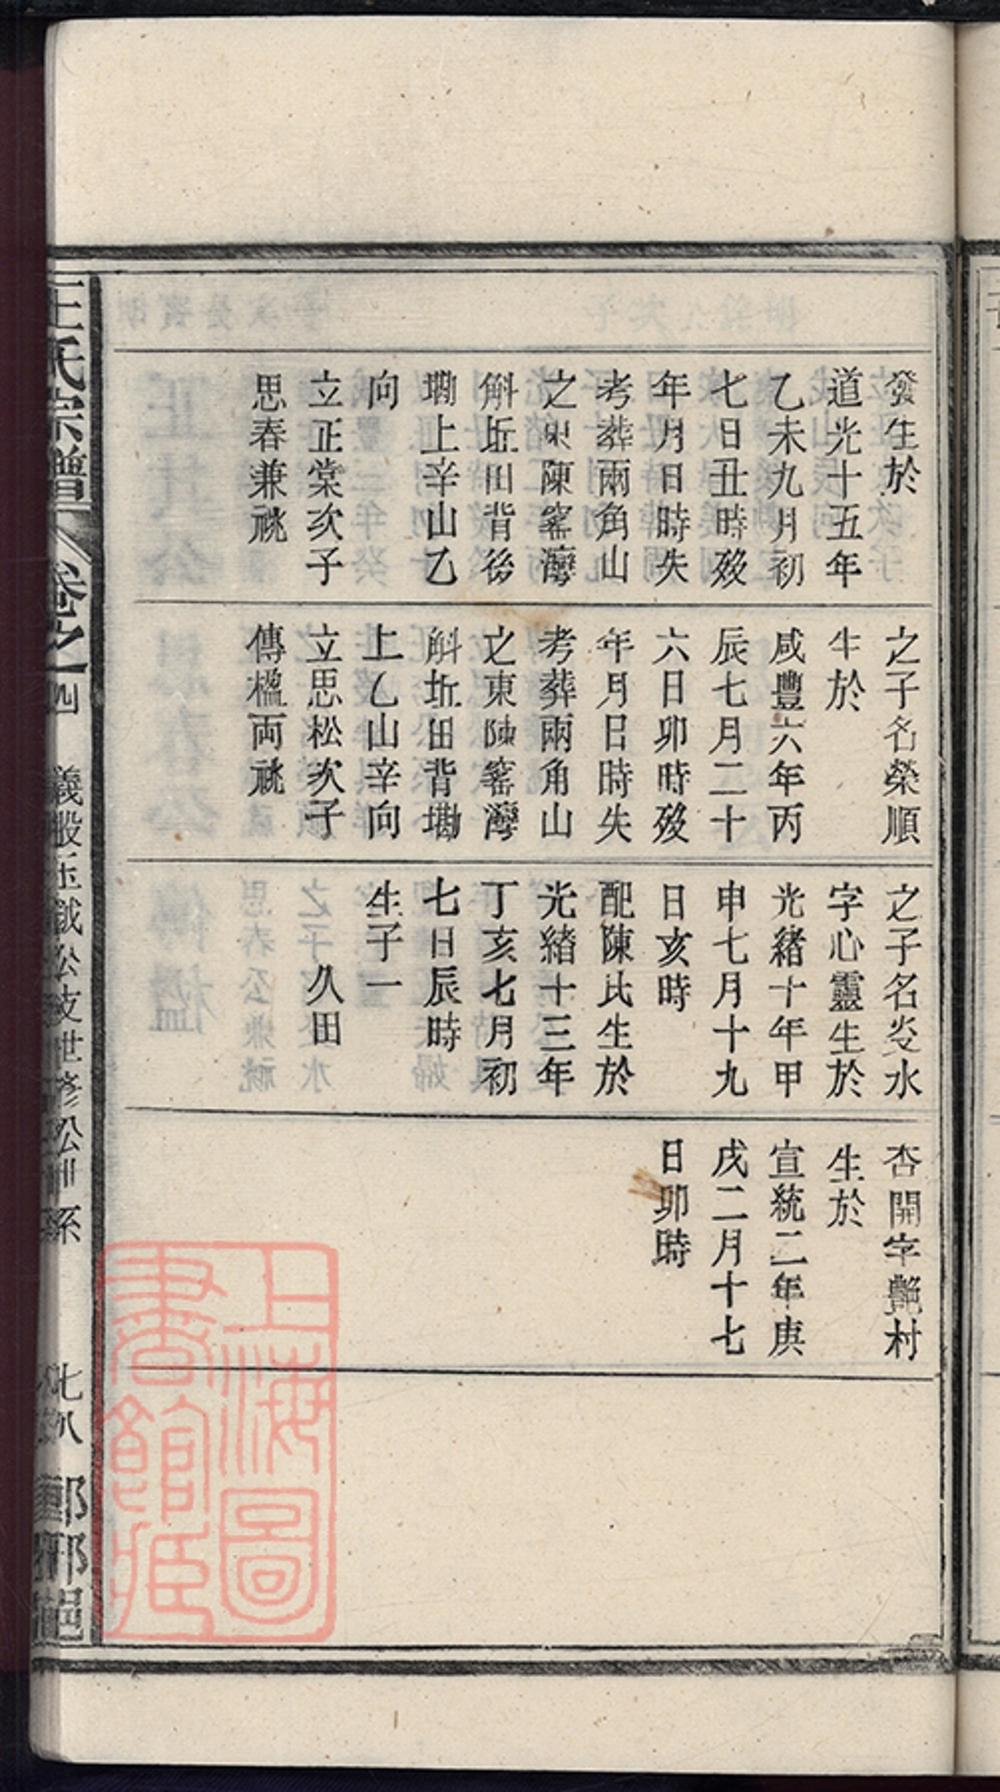 發生於
道光十五年
乙未九月初
七日丑時歿
年月日時失
考葬兩角山
之東陳窰灣
斛坵田背後
墈上辛山乙
向
立正棠次子
思春兼祧
之子名榮順
生於
咸豐六年丙
辰七月二十
六日卯時歿
年月日時失
考葬兩角山
之東陳窰灣
斛坵田背墈
上乙山辛向
立思松次子
傳楹両祧
之子名炎水
字心靈生於
光緒十年甲
申七月十九
日亥時
配陳氏生於
光緒十三年
丁亥七月初
七日辰時
久田
生子一
杏開字艷村
生於
宣統二年庚
戌二月十七
日卯時
王氏宗譜 卷之四 義股玉鉞公支世修公 系 七八
上海圖書館藏